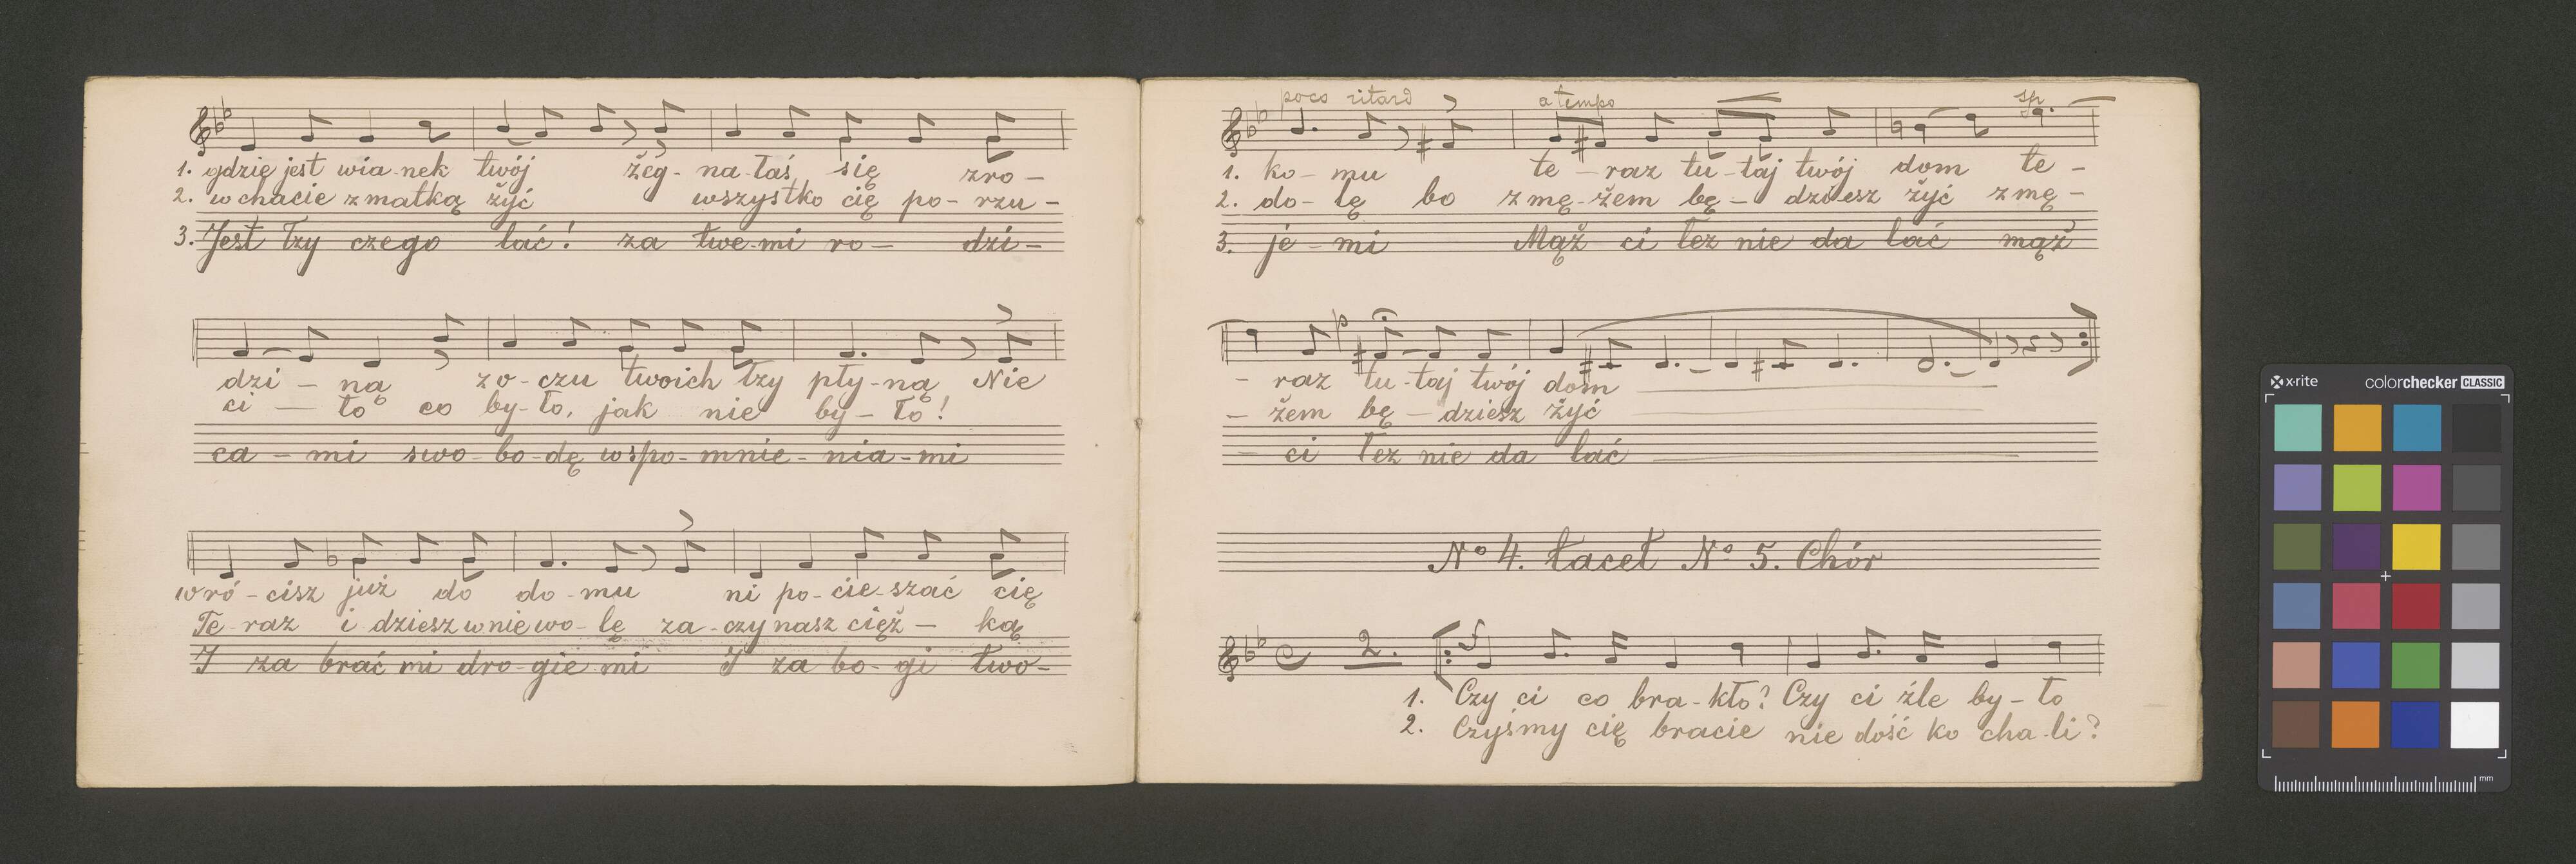 1. gdzię jest wia-nek twój żeg-na-łaś się zro-
2. w chacie z matką żyć wszystko cię po-rzu-
3. Jest łzy czego lać! za twe-mi ro-dzi-
dzi-ną z o-czu twoich łzy pły-ną Nie
ci-ło co by-ło, jak nie by-ło!
ca-mi swo-bo-dę wspo-mnie-nia-mi
wró-cisz już do do-mu ni po-cie-szać cię
Te-raz i dziesz w nie wo-lę za-czy nasz cięż-ką
I za brać mi dro-gie mi I za bo-gi two-
poco ritard a tempo
1. ko-mu te-raz tu-taj twój dom te-
2. do-lę bo z mę-żem bę-dziesz żyć z mę-
3. je-mi Mąż ci łez nie da lać mąż
- raz tu-taj twój dom
- żem bę-dziesz żyć
- ci łez nie da lać
Nº 4. tacet Nº 5. Chór
2.
1. Czy ci co bra-kło? Czy ci źle by-ło
2. Czyśmy cię bracie nie dość ko cha-li?
x-rite colorchecker CLASSIC
mm